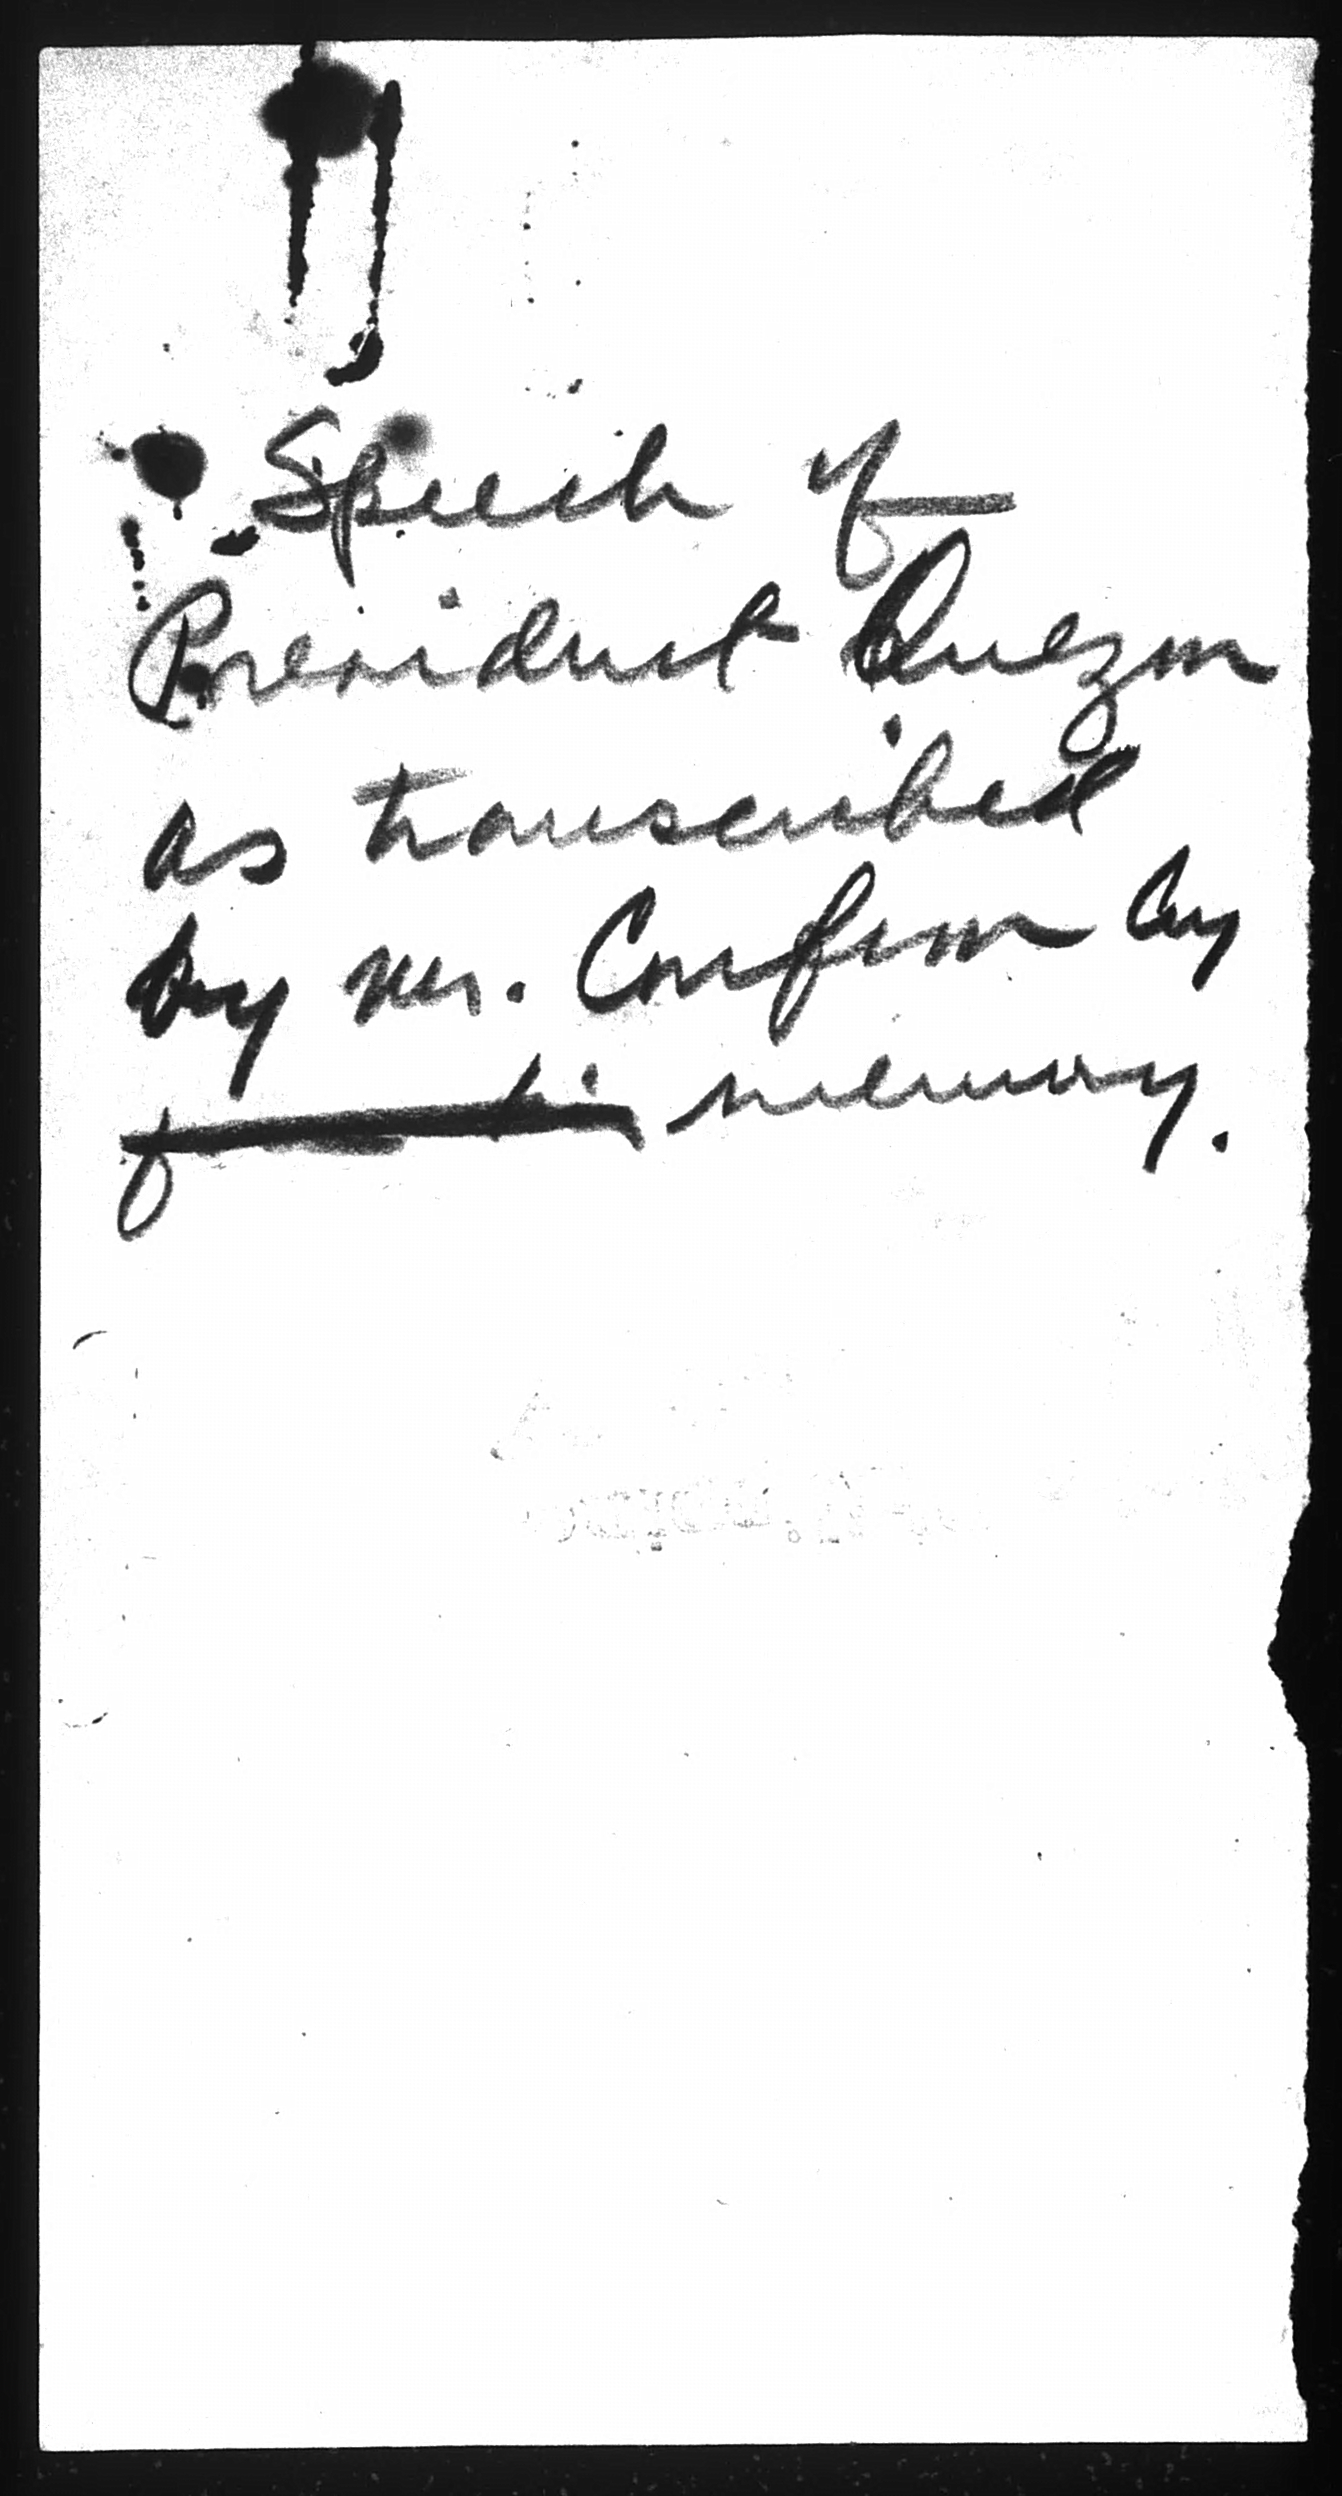 Speech of
President Quezon
as transcribed
by Mr. Confesor by
memory.